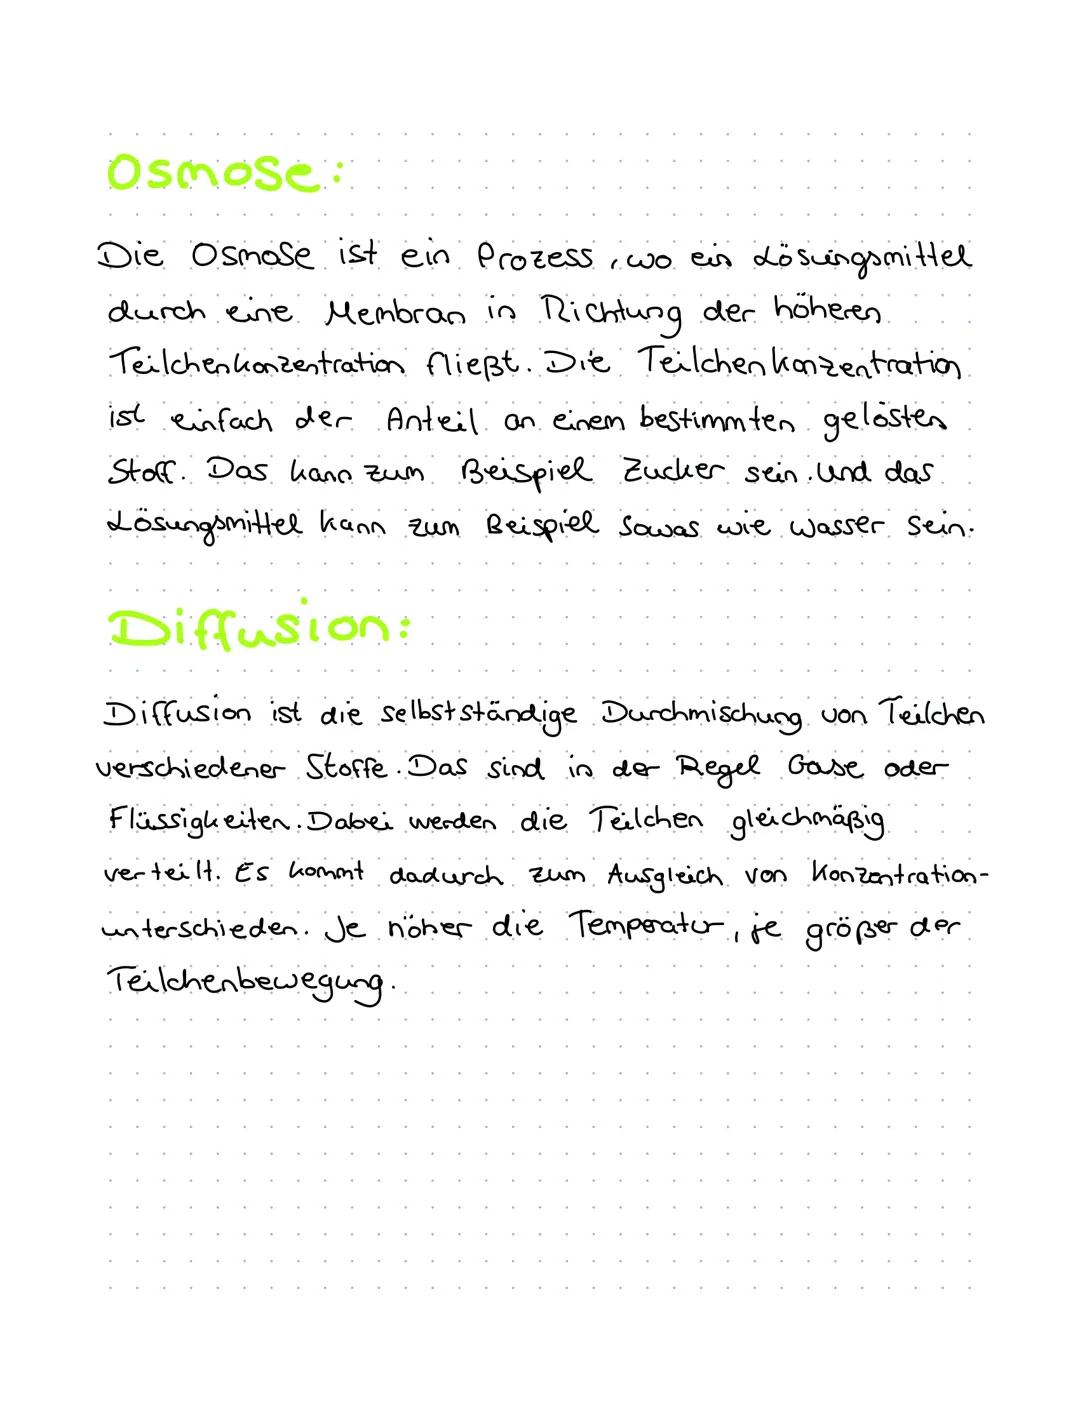 Osmose:
Die Osmose ist ein Prozess, wo ein Lösungsmittel
durch eine Membran in Richtung der höheren
Teilchenkonzentration fließt. Die Teilchenkonzentration
ist einfach der Anteil an einem bestimmten gelösten
Stoff. Das kann zum Beispiel Zucker sein. Und das
Lösungsmittel kann zum Beispiel sowas wie Wasser sein.
Diffusion:
Diffusion ist die selbstständige Durchmischung von Teilchen
verschiedener Stoffe. Das sind in der Regel Gase oder
Flüssigkeiten. Dabei werden die Teilchen gleichmäßig
verteilt. Es kommt dadurch zum Ausgleich von Konzentration-
unterschieden. Je höher die Temperatur, je größer der
Teilchenbewegung.